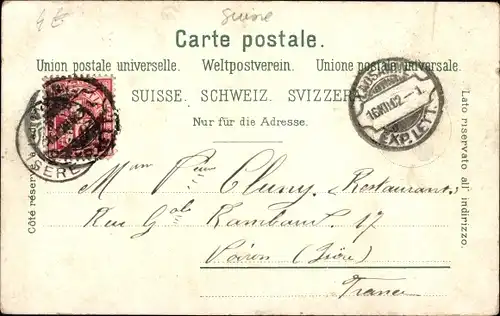 4 €
Suisse
Carte postale.
Union postale universelle. Weltpostverein. Unione postale universale.
SUISSE. SCHWEIZ. SVIZZERA
Nur für die Adresse.
Côté réservé
Lato riservato all' indirizzo.
16.XII.02 - 1
EXP. LETT.
Mon Cluny, (Restaurant)
Rue Gal Rambaud 17
Voiron (Isère)
France